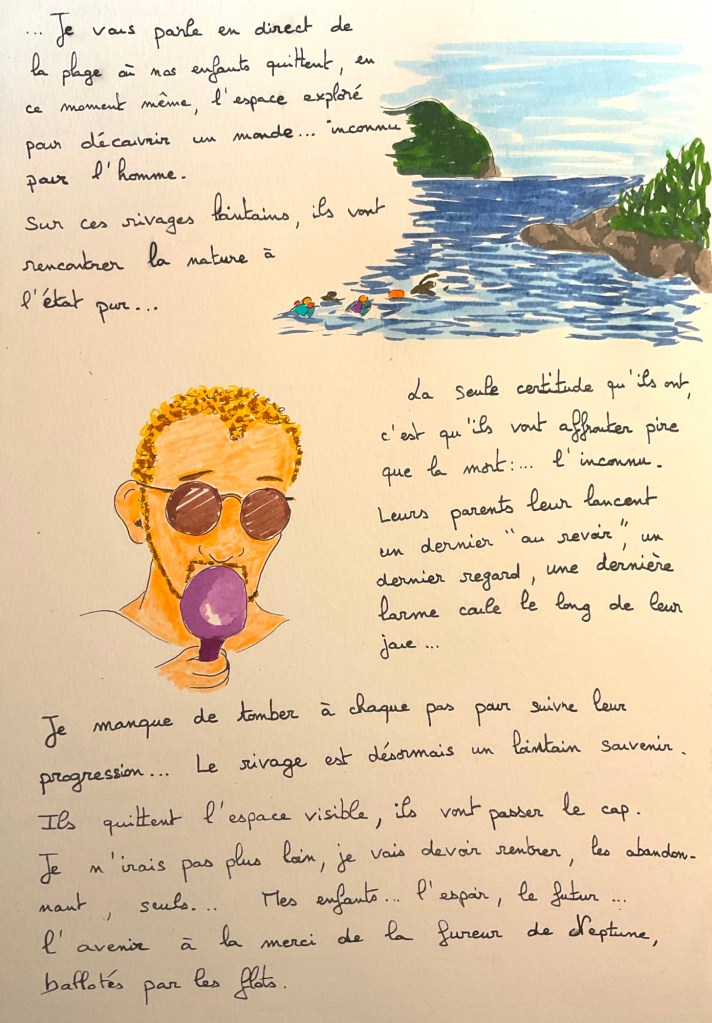 ... Je vous parle en direct de
la plage où nos enfants quittent, en
ce moment même, l'espace exploré
pour découvrir un monde... inconnu
pour l'homme.
Sur ces rivages lointains, ils vont
rencontrer la nature à
l'état pur...
La seule certitude qu'ils ont,
c'est qu'ils vont affronter pire
que la mort:... l'inconnu.
Leurs parents leur lancent
un dernier "au revoir", un
dernier regard, une dernière
larme coule le long de leur
joue...
Je manque de tomber à chaque pas pour suivre leur
progression... Le rivage est désormais un lointain souvenir.
Ils quittent l'espace visible, ils vont passer le cap.
Je n'irais pas plus loin, je vais devoir rentrer, les abandon-
nant, seuls... Mes enfants... l'espoir, le futur...
l'avenir à la merci de la fureur de Neptune,
ballotés par les flots.